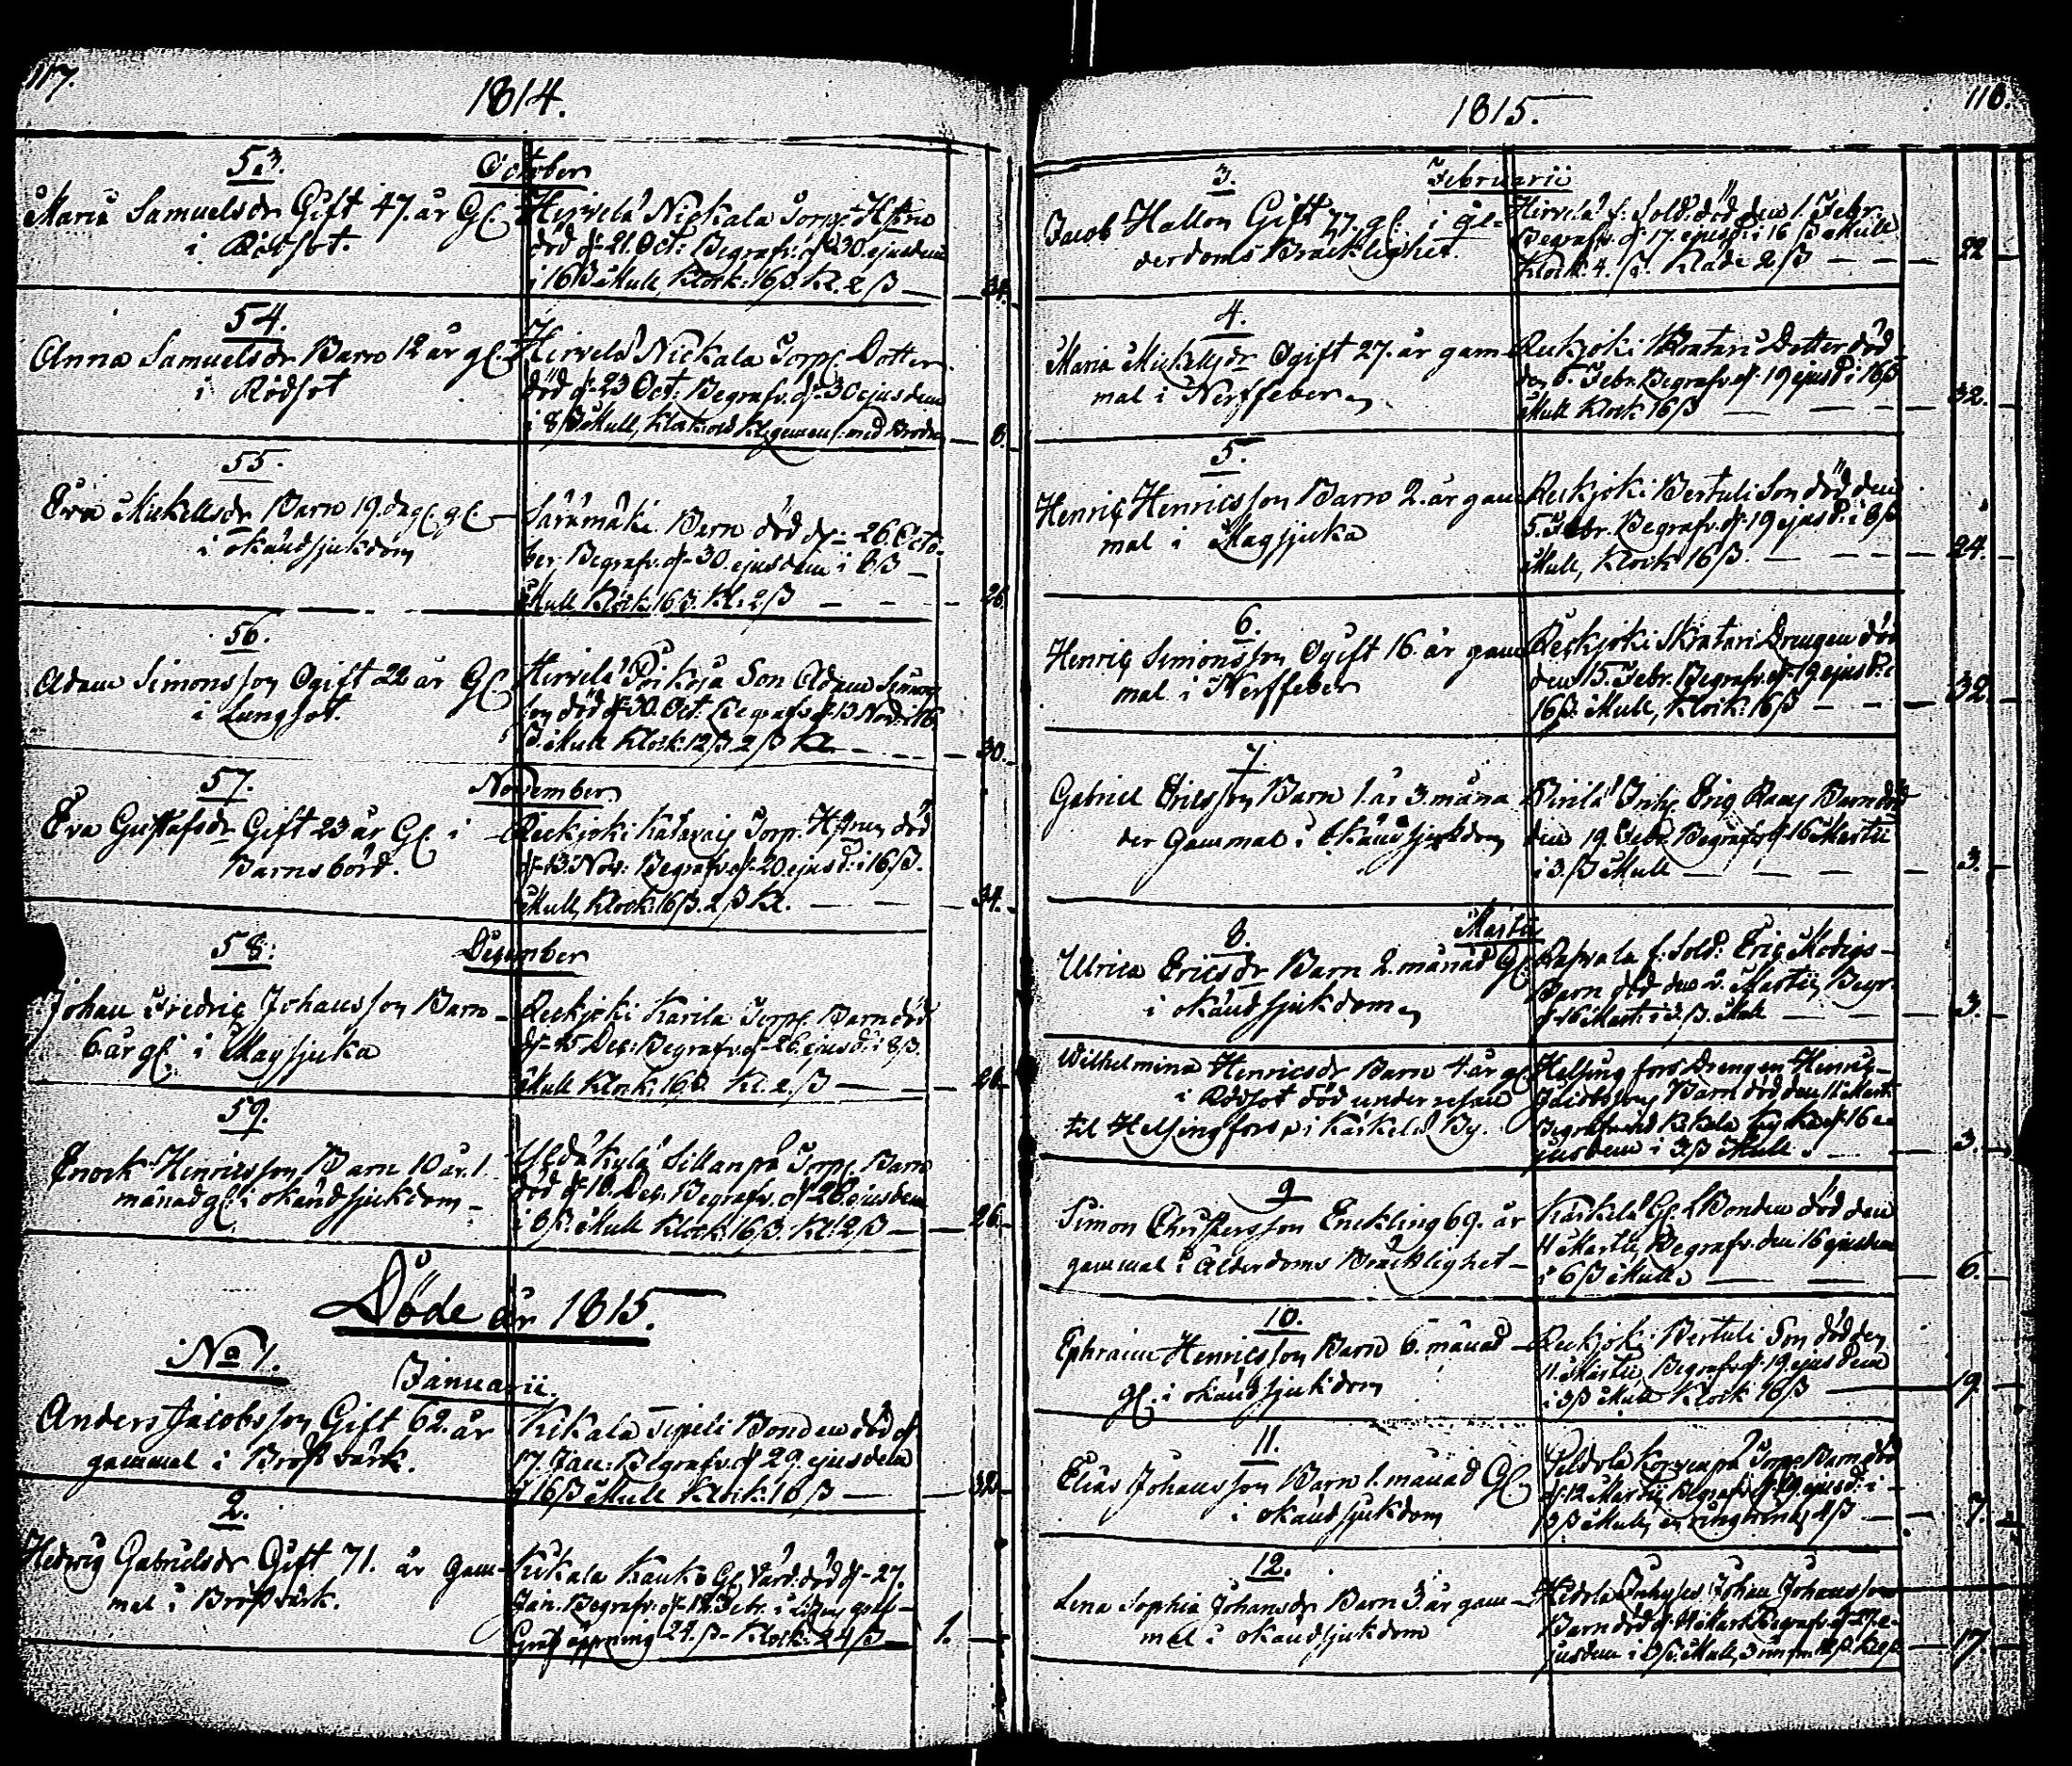 117.
1814.
53.
October
Maria Samuelsdr Gift 47. år Gl.
i Rödsot.
Hirvelä Nickala Torp. Hstru
död d. 21. Oct: Begrafv: d. 30. ejusdem
i 16 β Mull, Klock: 16 β. Kl. 2 β
34.
54.
Anna Samuelsdr Barn 12 år gl.
i Rödsot
Hirvelä Nickala Torp. Dotter
död d. 23 Oct: Begrafv. d. 30 ejusdem
i 8 β Mull, Klock och Kl. gemens: med Modren
8.
55.
Eva Michellsdr Barn 19. dag. gl.
i okänd sjukdom
Särämäki Barn död d. 26. Octo-
ber, Begrafv. d. 30. ejusdem i 8 β
Mull Klock. 16 β. Kl. 2 β
26.
56.
Adam Simonsson Ogift 22 år Gl.
i Lungsot.
Hirvelä Son Adam Simons
son död d. 30. Oct: Begrafv. d. 13 Nov. i 16
β. Mull Klock. 12 β. 2 β Kl.
30.
57.
November
Eva Gustafsdr Gift 23 år Gl. i
Barnsbörd.
Reckjoki Torp. Hstrun död
d. 13. Nov: Begrafv. d. 20. ejusd. i 16 β.
Mull, Klock. 16 β. 2 β Kl.
34.
58.
December
Johan Fredric Johansson Barn
6 år gl. i Magsjuka
Reckjoki Karila Torp. Barn död
d. 15 Dec: Begrafv. d. 26. ejusd. i 8 β.
Mull Klock. 16 β. Kl. 2. β
26.
59.
Enock Henricsson Barn 10 år. 1.
månad gl. i okänd sjukdom
Yldäkylä Sillanpä Torp. Barn
död d. 18. Dec. Begrafv. d. 26. ejusdem
i 8 β. Mull Klock. 16 β. Kl. 2 β
26.
Döde år 1815.
No 1.
Januarii.
Anders Jacobsson Gift 62. år
gammal i Bröstvärk.
Kikala Sipeli Bonden död d.
17. Jan: Begrafv. d. 29. ejusdem
i 16 β Mull Klock: 16 β
32.
2.
Hedvig Gabrielsdr Gift 71. år gam-
mal i Bröstvärk.
Kikala Kauko Gl. Värd. död d. 27.
Jan. Begrafv. d. 12. Febr. i
Graföppning 24. β Klock: 24 β
1.
118.
1815.
3.
Februarii
Jacob Hallon Gift 77. gl. i Ål-
derdoms Bräcklighet.
Hirvelä f. Sold. död den 1. Febr.
Begrafv. d. 17. ejusd. i 16 β Mull
Klock: 4. β. Kläde 2 β
22
4.
Maria Michellsdr Ogift 27. år gam-
mal i Nerffeber
Reckjoki Skratari Dotter död
den 6. Febr. Begrafv. d. 19 ejusd. i 16 β
Mull Klock 16 β
32.
5.
Henric Henricsson Barn 2. år gam
mal i Magsjuka
Reckjoki Bertuli Son död den
5. Febr. Begrafv. d. 19 ejusd. i 8 β
Mull, Klock 16 β.
24.
6.
Henric Simonsson Ogift 16 år gam
mal i Nerffeber
Reckjoki Skratari Drengen död
den 15. Febr. Begrafv. d. 19. ejusd. i
16 β. Mull, Klock: 16 β
32.
7.
Gabriel Ericsson Barn 1. år 3. måna
der gammal i okänd sjukdom
Pirilä Eric Barn död
den 19. Febr. Begrafv. d. 16 Martii
i 3. β Mull
3.
8.
Martii
Ulrica Ericsdr Barn 2. månad Gl.
i okänd sjukdom
f. Sold: Eric Modigs
Barn död den 2. Martii, Begr.
d. 16 Mart: i 3. β. Mull
3.
Wilhelmina Henricsdr Barn 4 år gl.
i Rödsot död under resan
til Helsingfors i Kärkelä By.
Helsingfors Drengen Henric
Jacobssons Barn död den 11. Mart:
Begrafv. vid Kyrka d. 16 e-
jusdem i 3 β Mull.
3.
9
Simon Christersson Enckling 69. år
gammal i Ålderdoms Bräcklighet
Kärkelä Gl. Bonden död den
4 Martii, Begrafv. den 16 ejusdem
i 6 β Mull.
6.
10.
Ephraim Henricsson Barn 6. månad
gl. i okänd sjukdom
Reckjoki Bertuli Son död den
11. Martii, Begrafv. d. 19. ejusdem
i 3 β Mull Klock 16 β
19.
11.
Elias Johansson Barn 1. månad Gl.
i okänd sjukdom
Torp. Barn död
d. 12 Martii Begrafv. d. 19. ejusd. i
3 β Mull, en ringning 4 β
7.
12.
Lena Sophia Johansdr Barn 3. år gam
mal i okänd sjukdom
Johan Johansson
Barn död d. Mart: Begrafv. d. e-
jusdem i 3 β. Mull, 3
17.